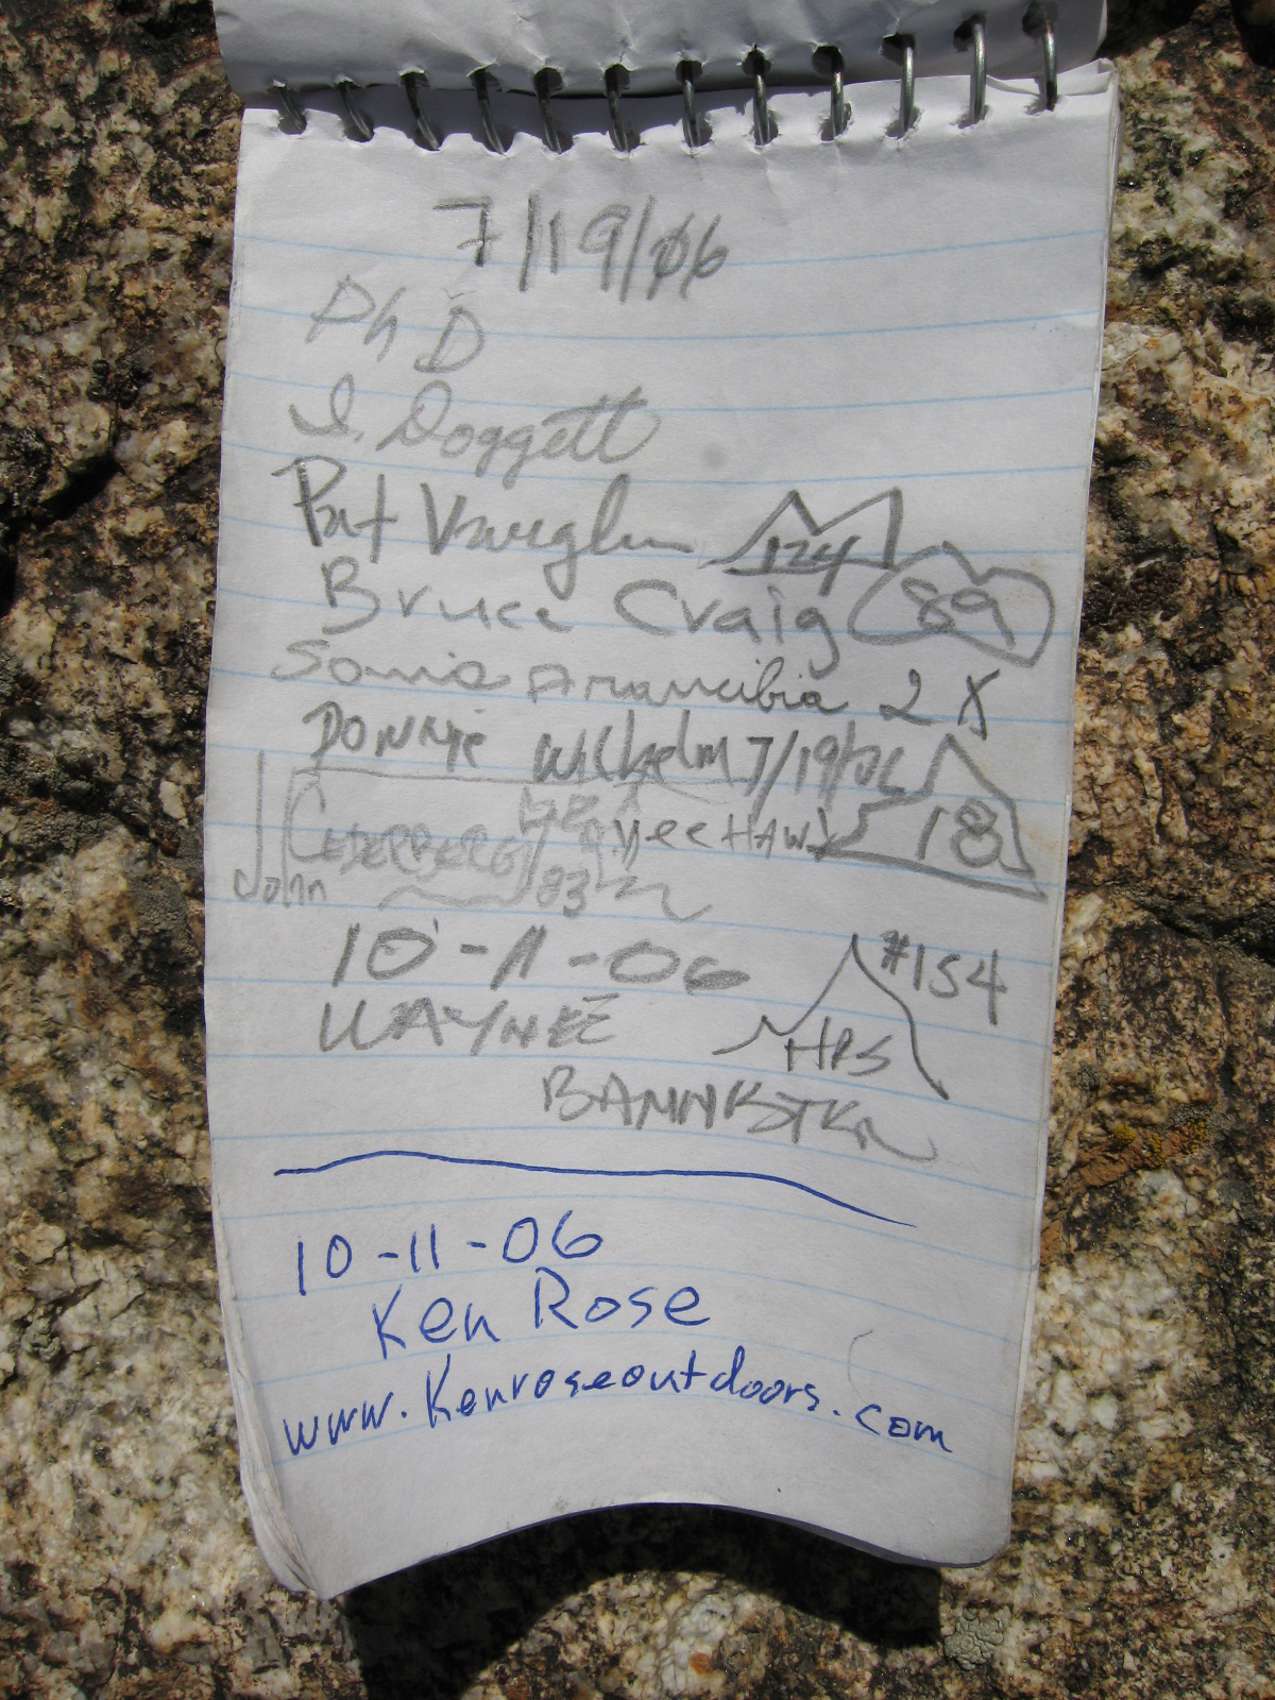 7/19/06
Ph D
I. Doggett
Pat Vaughn 124
Bruce Craig 89
Sonia Arancibia 2 X
DONNIE Wilhelm 7/19/06
John CEDERBERG YeeHAW! 18
83
10-11-06 #154
WAYNE HPS
BANNISTER
10-11-06
Ken Rose
www.Kenroseoutdoors.com